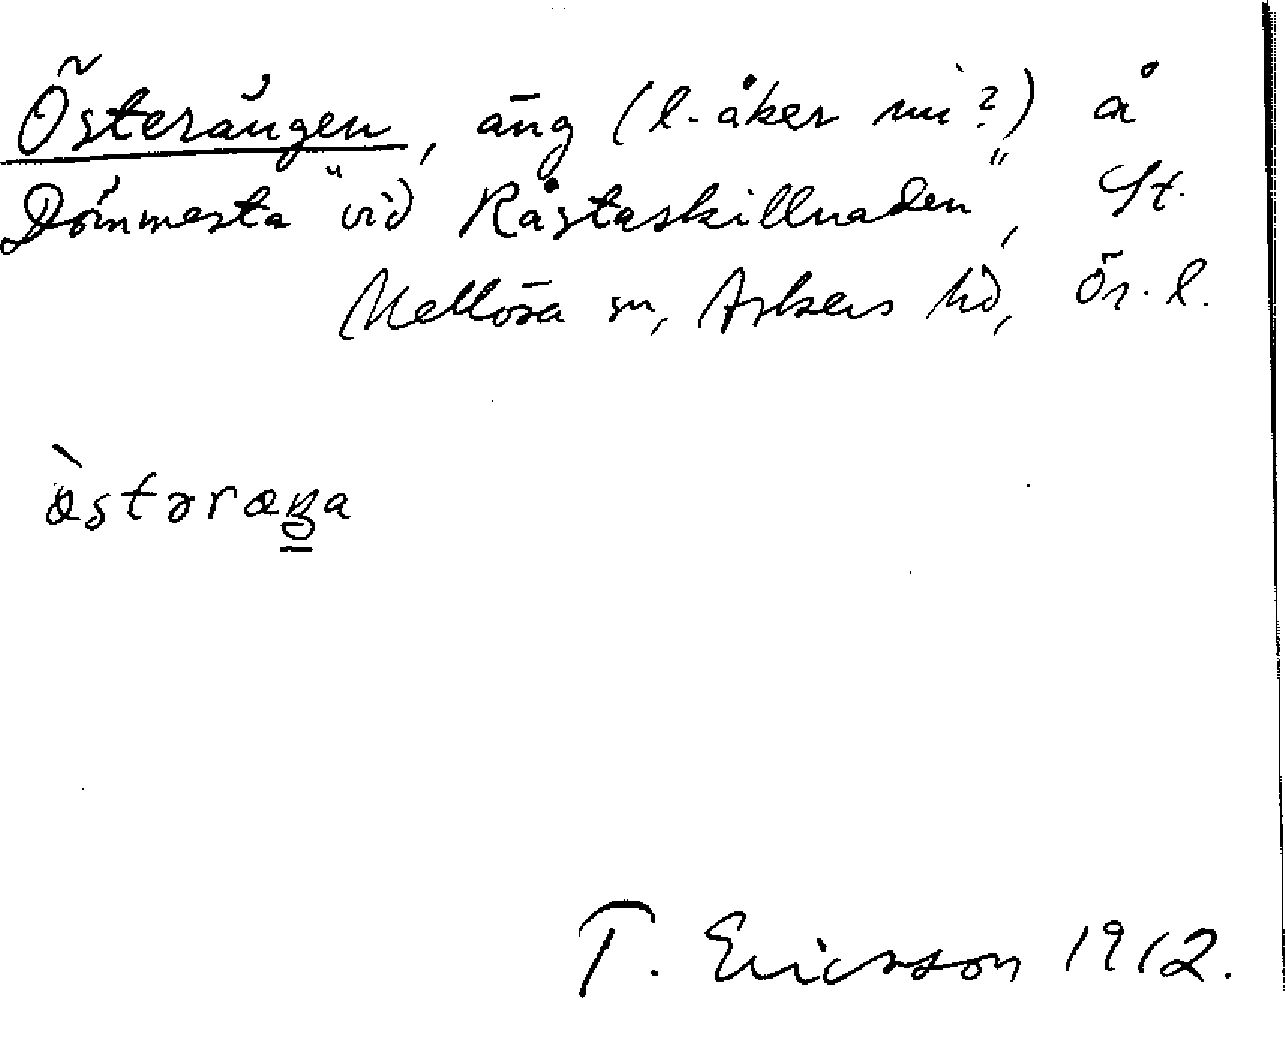 Österängen, äng (l. åker nu?) å
Dömmesta "vid Råstaskillnaden", St.
Mellösa sn, Askers hd, Ör. l.
östəræŋa
T. Ericsson 1912.